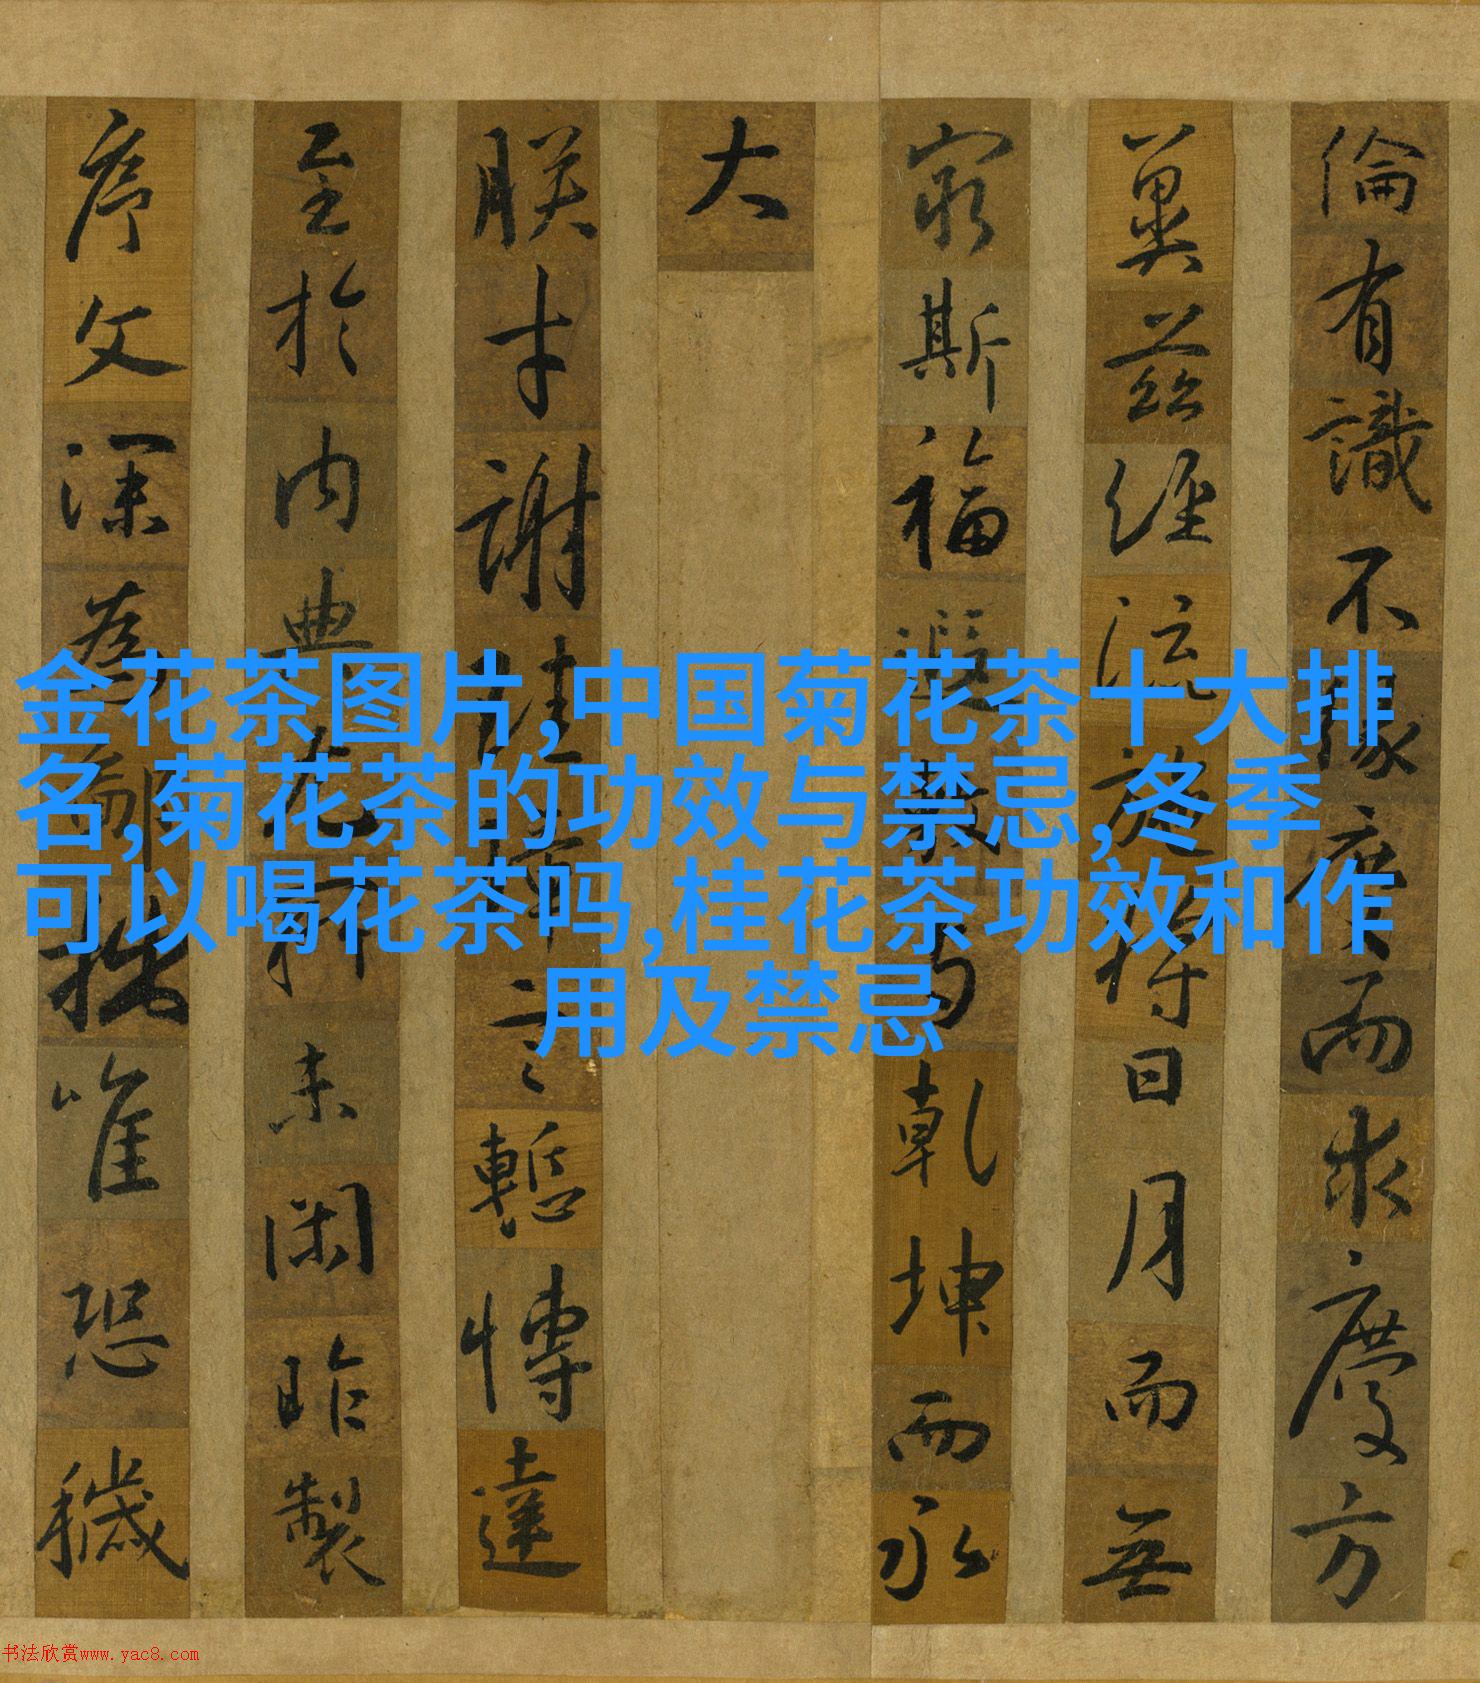 倫有識不緣慶而求慶方
冀茲經流施将日月而無
窮斯福遐敷与乾坤而永
大
朕才謝珪璋言慙博達
至於内典尤所未閑昨製
序文深為鄙拙唯恐穢
金花茶图片,中国菊花茶十大排
名,菊花茶的功效与禁忌,冬季
可以喝花茶吗,桂花茶功效和作
用及禁忌
书法欣赏www.yac8.com